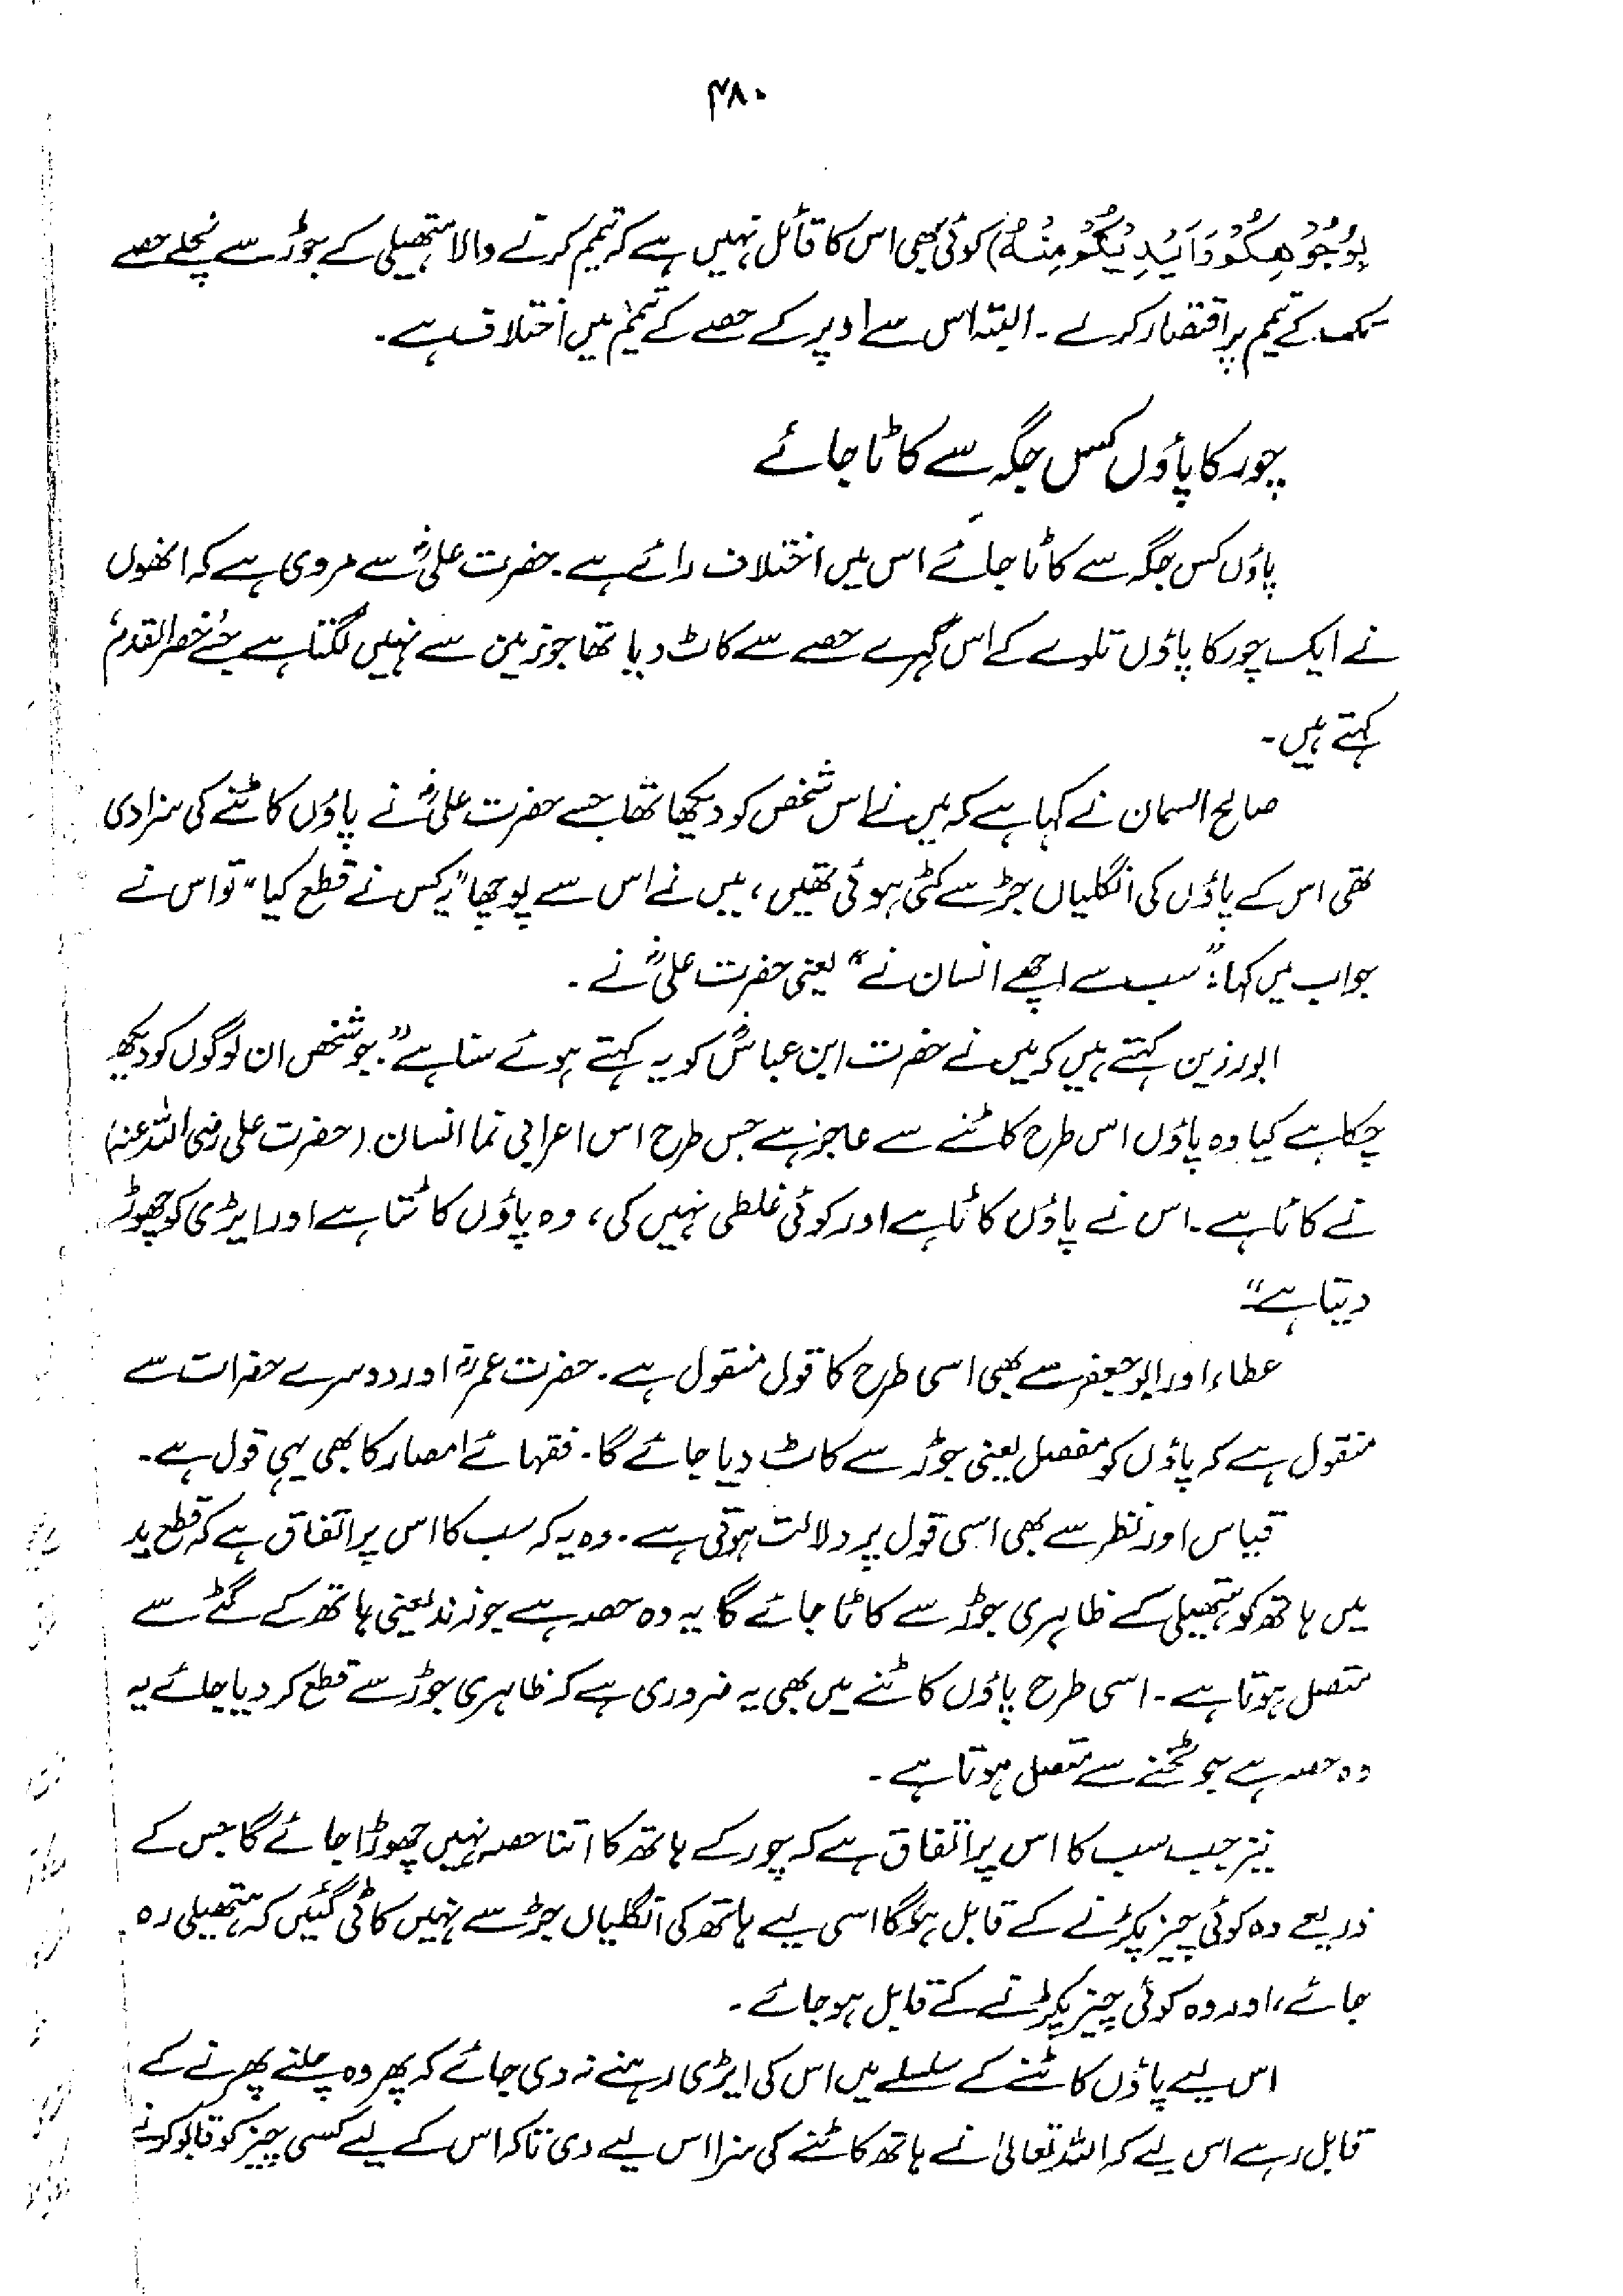 ۴۸۰
بِوُجُوْهِكُمْ وَاَيْدِيْكُمْ مِنْهُ) کوئی بھی اس کا قائل نہیں ہے کہ تیمم کرنے والا ہتھیلی کے جوڑ سے نچلے حصے
تک کے تیمم پر اقتصار کرلے ۔ البتہ اس سے اوپر کے حصے کے تیمم میں اختلاف ہے۔
چور کا پاؤں کس جگہ سے کاٹا جائے
پاؤں کس جگہ سے کاٹا جائے اس میں اختلاف رائے ہے۔ حضرت علیؓ سے مروی ہے کہ انھوں
نے ایک چور کا پاؤں تلوے کے اس گہرے حصے سے کاٹ دیا تھا جو زمین سے نہیں لگتا ہے جسے خصر القدم
کہتے ہیں۔
صالح السمان نے کہا ہے کہ میں نے اس شخص کو دیکھا تھا جسے حضرت علیؓ نے پاؤں کاٹنے کی سزا دی
تھی اس کے پاؤں کی انگلیاں جڑ سے کٹی ہوئی تھیں، میں نے اس سے پوچھا "یہ کس نے قطع کیا" تو اس نے
جواب میں کہا: "سب سے اچھے انسان نے" یعنی حضرت علیؓ نے۔
ابورزین کہتے ہیں کہ میں نے حضرت ابن عباسؓ کو یہ کہتے ہوئے سنا ہے" جو شخص ان لوگوں کو دیکھ
چکا ہے کیا وہ پاؤں اس طرح کاٹنے سے عاجز ہے جس طرح اس اعرابی نما انسان (حضرت علی رضی اللہ عنہ)
نے کاٹا ہے۔ اس نے پاؤں کاٹا ہے اور کوئی غلطی نہیں کی، وہ پاؤں کاٹتا ہے اور ایڑی کو چھوڑ
دیتا ہے"
عطاء اور ابو جعفر سے بھی اسی طرح کا قول منقول ہے۔ حضرت عمرؓ اور دوسرے حضرات سے
منقول ہے کہ پاؤں کو مفصل یعنی جوڑ سے کاٹ دیا جائے گا۔ فقہائے امصار کا بھی یہی قول ہے۔
قیاس اور نظر سے بھی اسی قول پر دلالت ہوتی ہے۔ وہ یہ کہ سب کا اس پر اتفاق ہے کہ قطع ید
میں ہاتھ کو ہتھیلی کے ظاہری جوڑ سے کاٹا جائے گا یہ وہ حصہ ہے جو زند یعنی ہاتھ کے گٹے سے
متصل ہوتا ہے۔ اسی طرح پاؤں کاٹنے میں بھی یہ ضروری ہے کہ ظاہری جوڑ سے قطع کر دیا جائے یہ
وہ حصہ ہے جو ٹخنے سے متصل ہوتا ہے۔
نیز جب سب کا اس پر اتفاق ہے کہ چور کے ہاتھ کا اتنا حصہ نہیں چھوڑا جائے گا جس کے
ذریعے وہ کوئی چیز پکڑنے کے قابل ہوگا اسی لیے ہاتھ کی انگلیاں جڑ سے نہیں کاٹی گئیں کہ ہتھیلی رہ
جائے، اور وہ کوئی چیز پکڑنے کے قابل ہو جائے۔
اس لیے پاؤں کاٹنے کے سلسلے میں اس کی ایڑی رہنے نہ دی جائے کہ پھر وہ چلنے پھرنے کے
قابل رہے اس لیے کہ اللہ تعالیٰ نے ہاتھ کاٹنے کی سزا اس لیے دی تاکہ اس کے لیے کسی چیز کو قابو کرنے